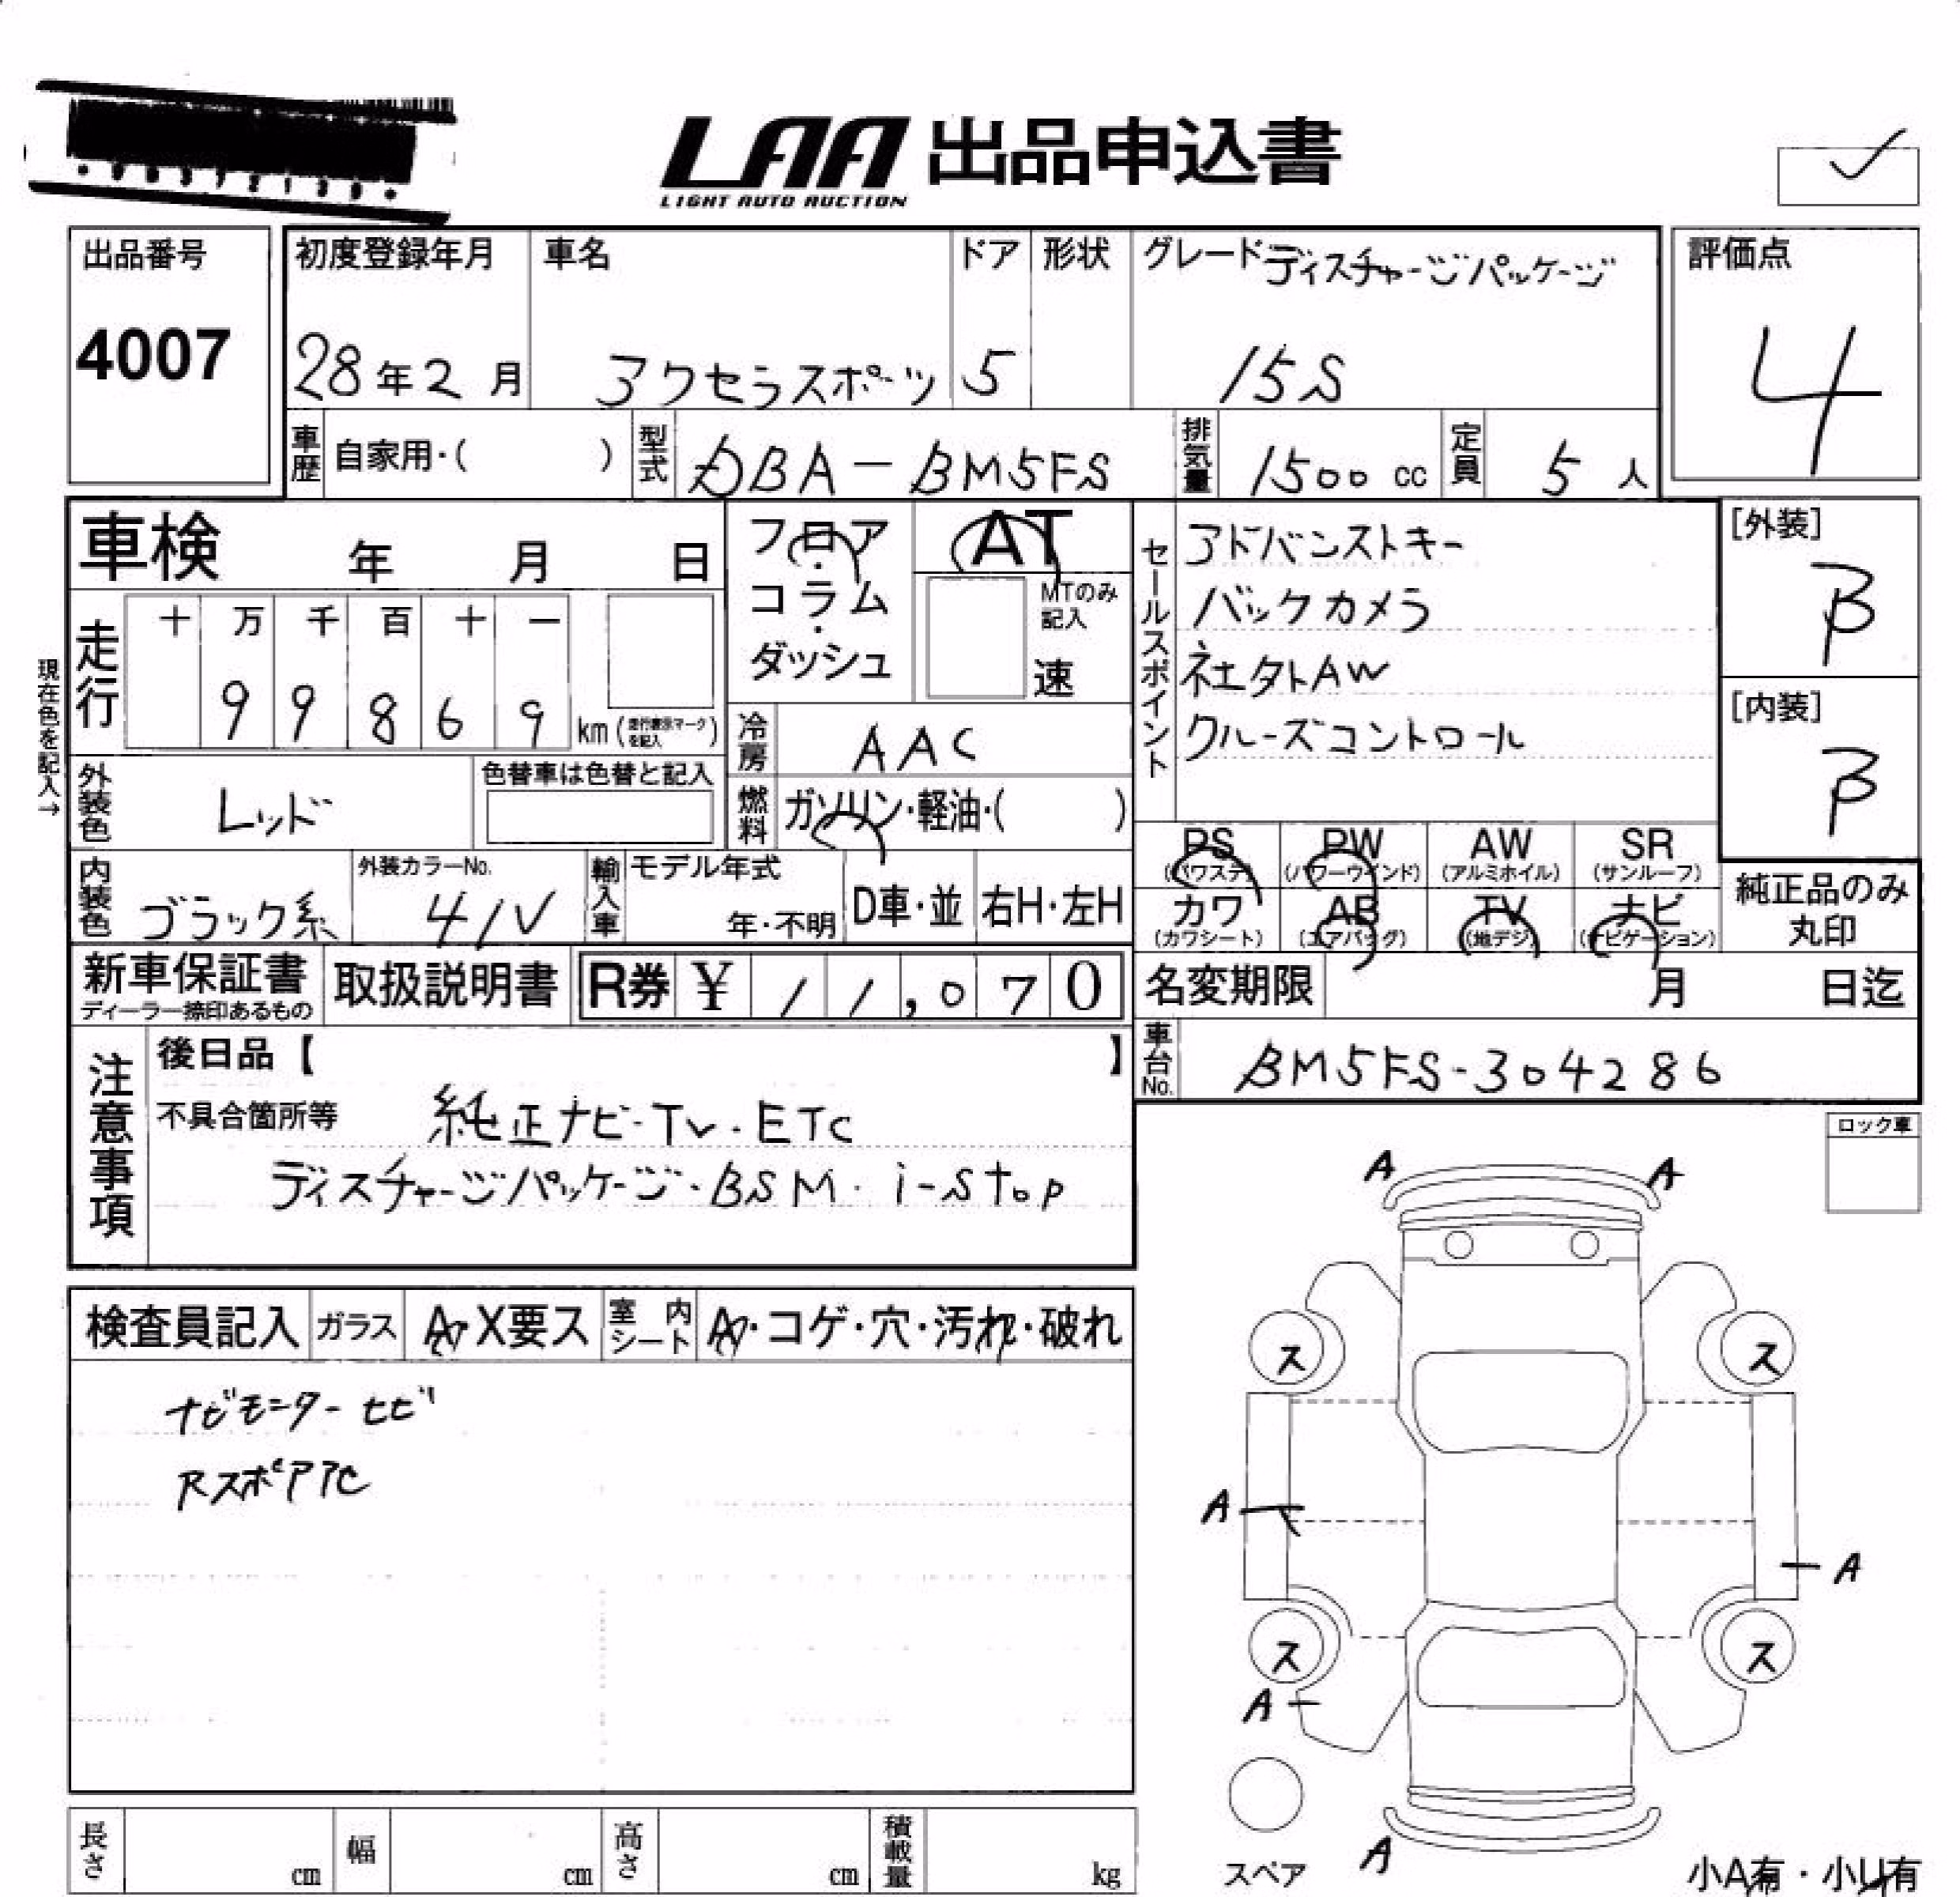 LAA 出品申込書
LIGHT AUTO AUCTION
出品番号
4007
初度登録年月
28年2月
車名
アクセラスポーツ
ドア
5
形状
グレード ディスチャージパッケージ
15S
評価点
4
車歴 自家用・( )
型式 DBA-BM5FS
排気量 1500cc
定員 5人
車検 年 月 日
フロア・コラム・ダッシュ
AT
MTのみ記入
速
セールスポイント
アドバンストキー
バックカメラ
社外AW
クルーズコントロール
[外装]
B
[内装]
B
現在色を記入→
走行 十 万 千 百 十 一
9 9 8 6 9 km (走行表示マークを記入)
冷房 AAC
外装色 レッド
色替車は色替と記入
燃料 ガソリン・軽油・( )
内装色 ブラック系
外装カラーNo.
41V
輸入車 モデル年式
年・不明
D車・並
右H・左H
PS (パワステ) PW (パワーウインド) AW (アルミホイル) SR (サンルーフ)
カワ (カワシート) AB (エアバッグ) TV (地デジ) ナビ (ナビゲーション)
純正品のみ丸印
新車保証書
ディーラー捺印あるもの
取扱説明書
R券 ¥11,070
名変期限 月 日迄
車台No. BM5FS-304286
注意事項
後日品【 】
不具合箇所等 純正ナビ・TV・ETC
ディスチャージパッケージ・BSM・i-stop
ロック車
検査員記入 ガラス A・X要ス 室内シート A・コゲ・穴・汚れ・破れ
ナビモニターヒビ
RスポアC
A A
ス ス
A
A
ス ス
A
A
スペア
小A有・小U有
長さ cm 幅 cm 高さ cm 積載量 kg